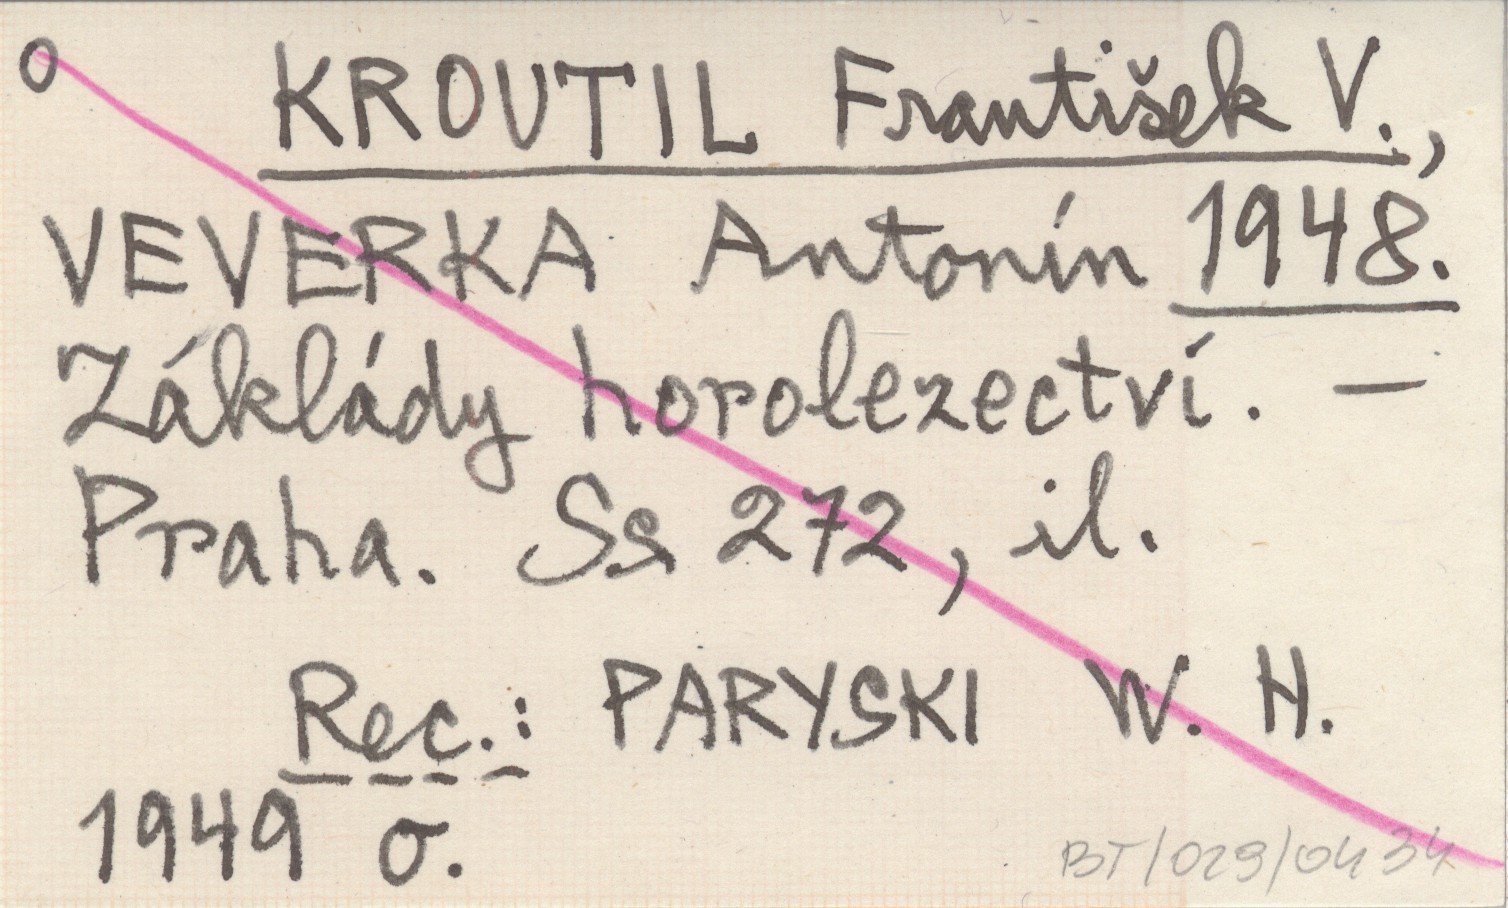 o KROUTIL František V.,
VEVERKA Antonín 1948.
Základy horolezectví. –
Praha. Ss 272, il.
Rec.: PARYSKI W. H.
1949 σ.
BT/029/0434